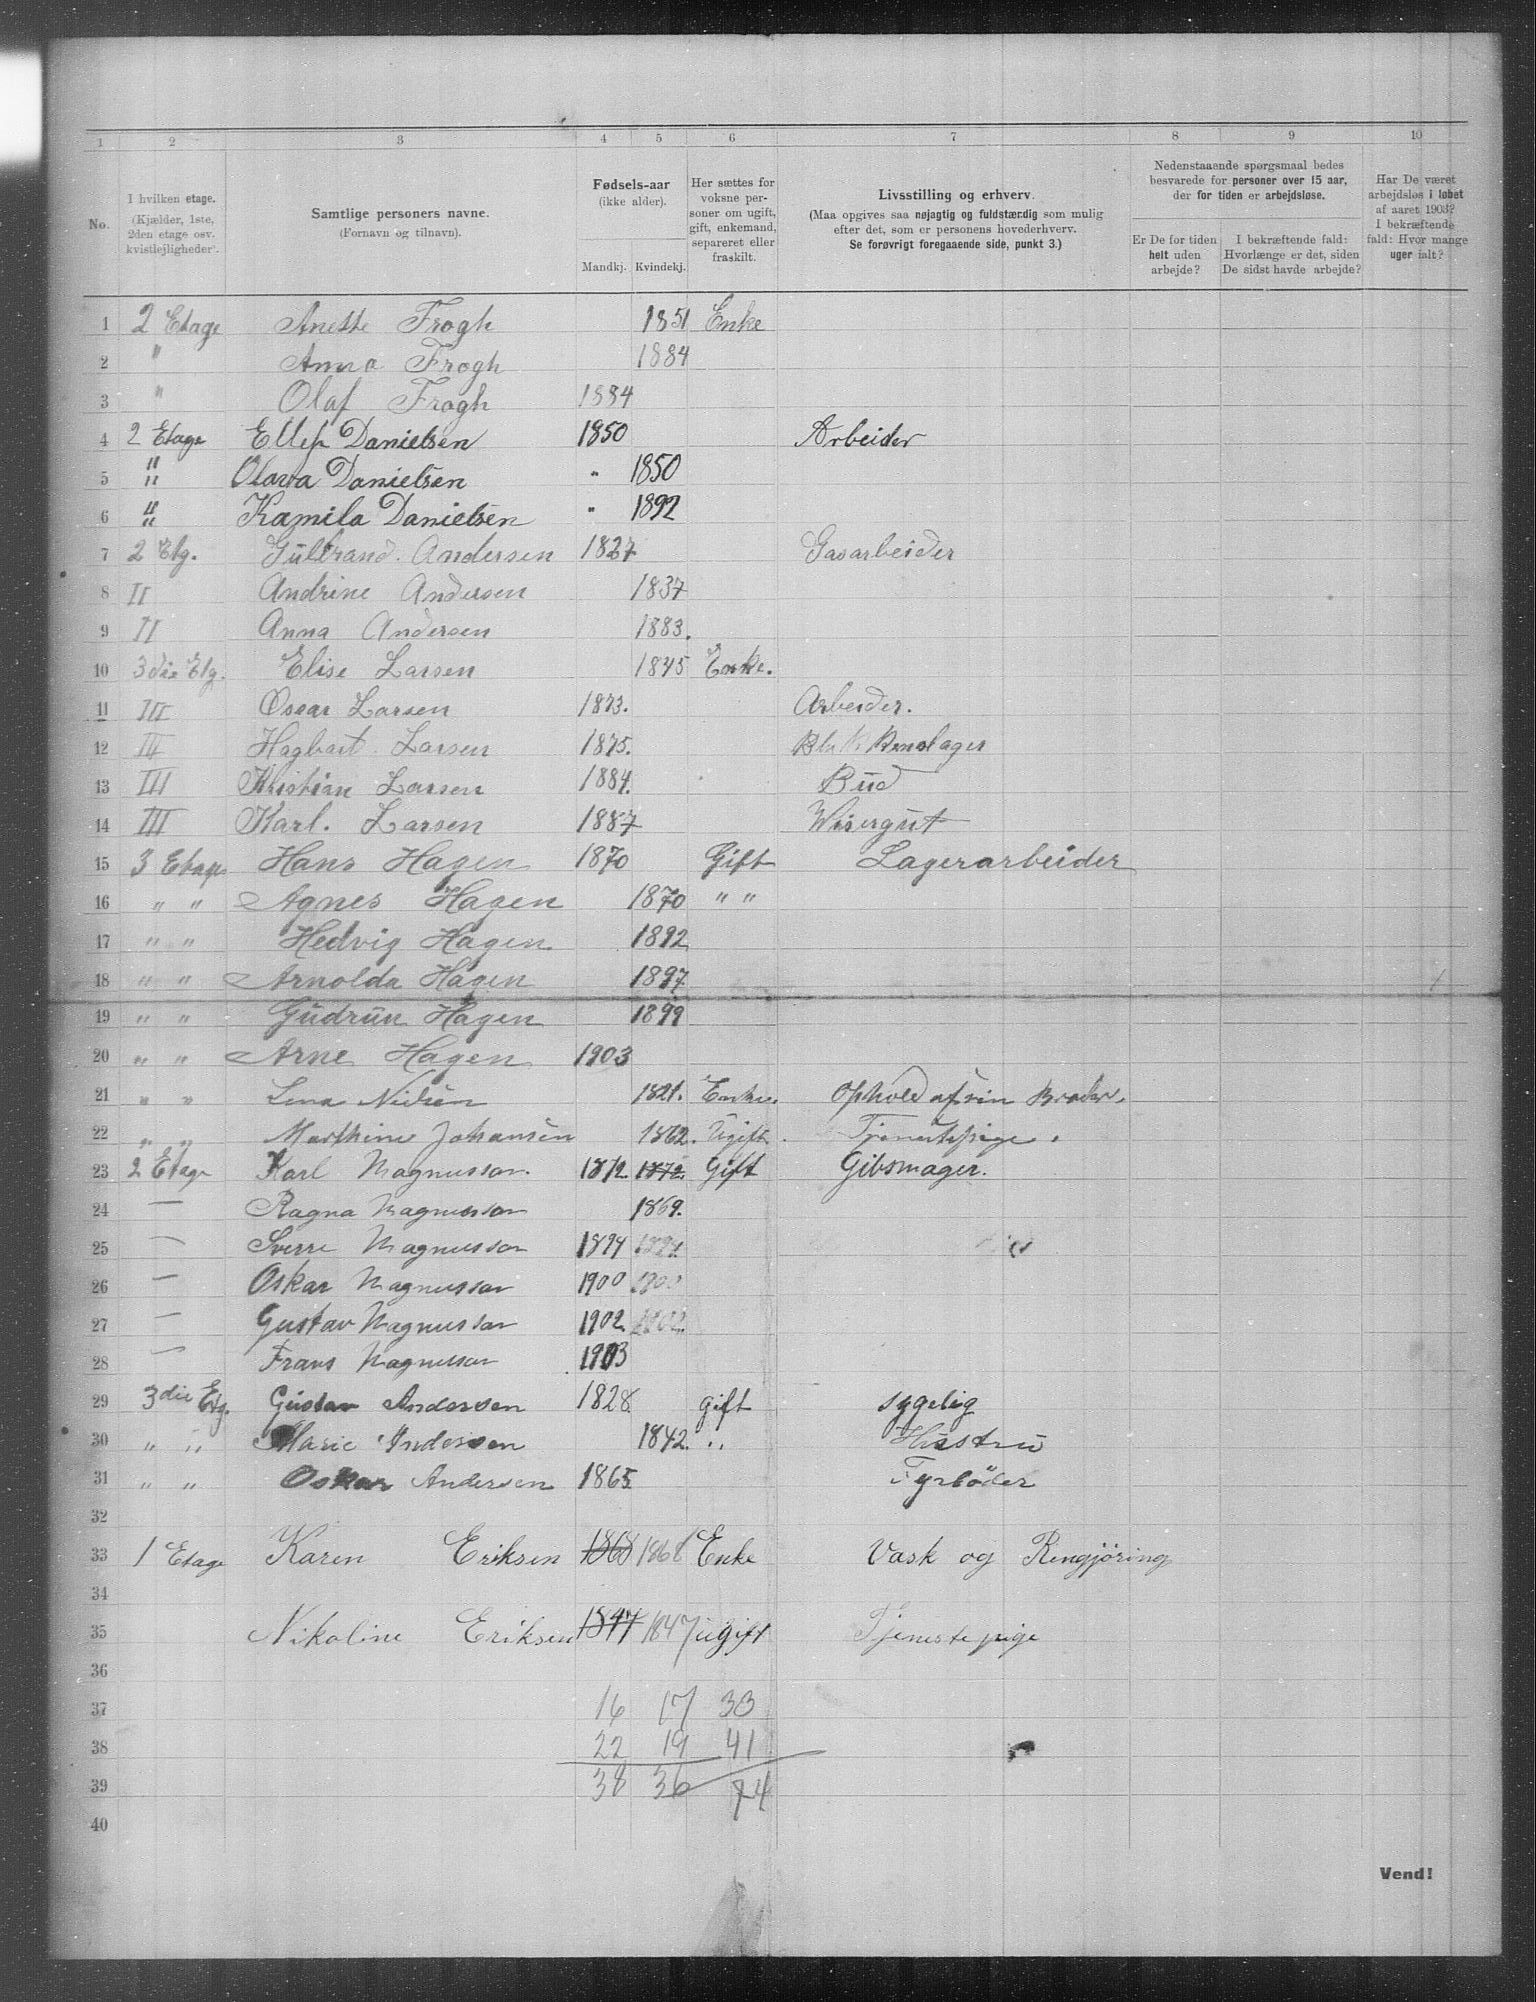 1 2 3 4 5 6 7 8 9 10
No.
I hvilken etage. (Kjælder, 1ste, 2den etage osv. kvistleiligheder).
Samtlige personers navne. (Fornavn og tilnavn).
Fødsels-aar (ikke alder).
Mandkj. Kvindekj.
Her sættes for voksne personer om ugift, gift, enkemand, separeret eller fraskilt.
Livsstilling og erhverv.
(Maa opgives saa nøjagtig og fuldstærdig som mulig efter det, som er personens hovederhverv. Se forøvrigt foregaaende side, punkt 3.)
Nedenstaaende spørgsmaal bedes besvarede for personer over 15 aar, der for tiden er arbejdsløse.
Er De for tiden helt uden arbejde?
I bekræftende fald: Hvorlænge er det, siden De sidst havde arbejde?
Har De været arbejdsløs i løbet af aaret 1903? I bekræftende fald: Hvor mange uger ialt?
1 2 Etage Anette Frogh 1851 Enke
2 " Anna Frogh 1884
3 " Olaf Frogh 1884
4 2 Etage Ellef Danielsen 1850 Arbeider
5 " Olava Danielsen " 1850
6 " Kamila Danielsen " 1892
7 2 Etg. Gulbrand Andersen 1827 Gasarbeider
8 II Andrine Andersen 1837
9 II Anna Andersen 1883.
10 3die Etg. Elise Larsen 1845 Enke.
11 III Oscar Larsen 1873. Arbeider.
12 III Hagbart Larsen 1875.
13 III Kristian Larsen 1884. Bud
14 III Karl. Larsen 1887 Wisergut
15 3 Etage Hans Hagen 1870 Gift Lagerarbeider
16 " " Agnes Hagen 1870 " "
17 " " Hedvig Hagen 1892
18 " " Arnolda Hagen 1897
19 " " Gudrun Hagen 1899
20 " " Arne Hagen 1903
21 " " Lena Nielsen 1821. Enke. Ophold af sin Broder.
22 " " Marthine Johansen 1862. Ugift. Tjenestepige.
23 2 Etage Karl Magnusson. 1872 1872 Gift Gibsmager.
24 — Ragna Magnusson 1869.
25 — Sverre Magnusson 1894 1894
26 — Oskar Magnusson 1900 1900
27 — Gustav Magnusson 1902 1902.
28 — Frans Magnusson 1903
29 3die Etg. Gustav Andersen 1828 gift sygelig
30 " " Marie Andersen 1842. " Hustru
31 " " Oskar Andersen 1865 Fyrbøder
32
33 1 Etage Karen Eriksen 1868 1868 Enke Vask og Rengjöring
34
35 Nikoline Eriksen 1847 1847 ugift Tjenestepige
36
37 16 17 33
38 22 19 41
39 38 36 74
40
Vend!